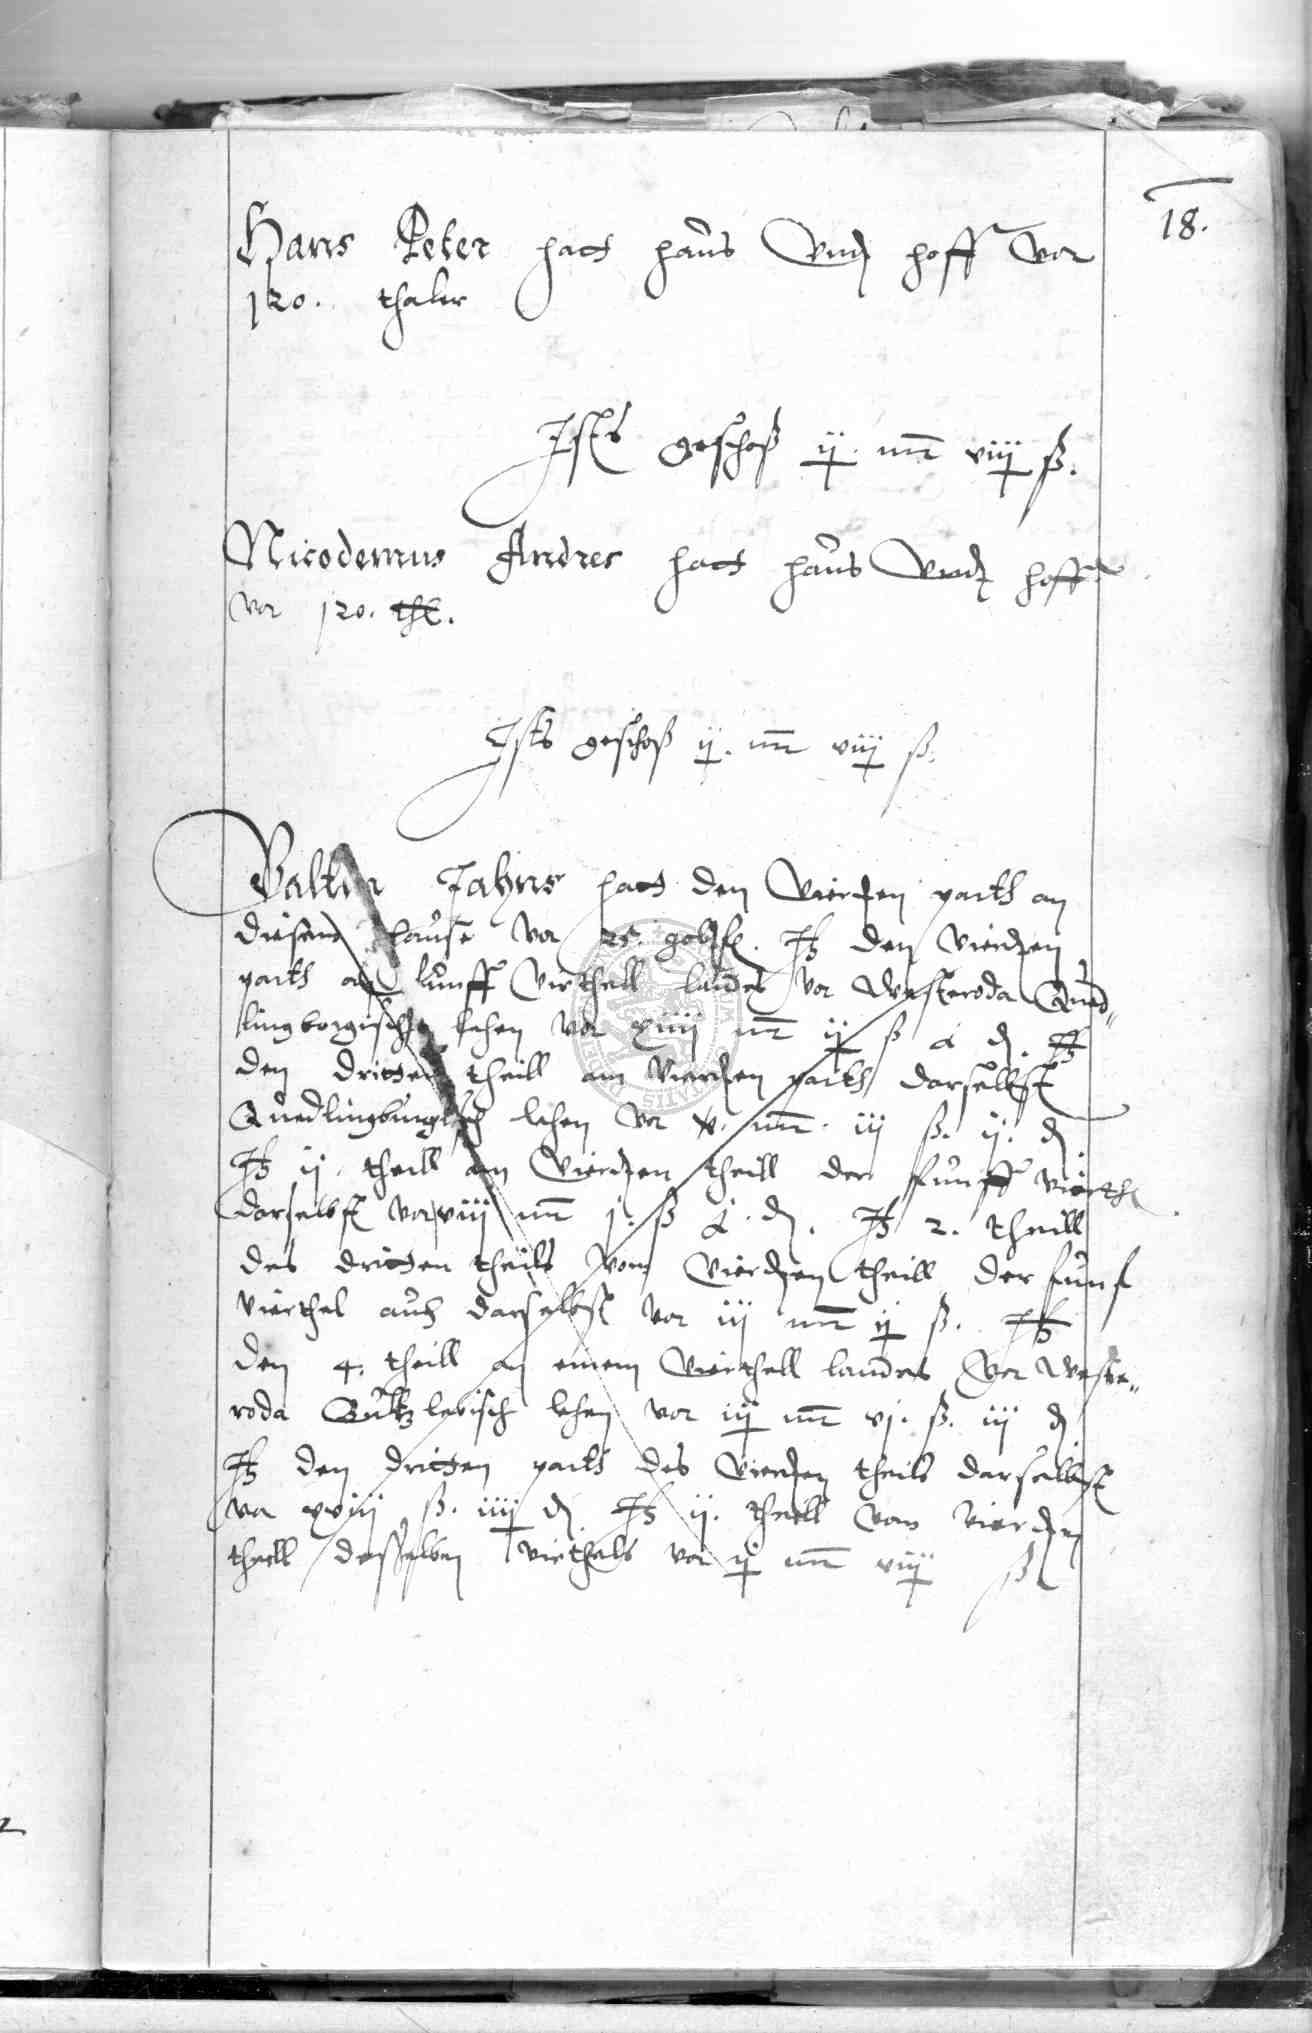 18.
Hans Peter hatt haus Vnd hoff vor
120. thaler
Ists geschoß ij. mr viij ß.
Nicodemus Andres hatt haus Vnd hoff
vor 120. thl.
Ists geschoß ij. mr viij ß.
Valtin Jahns hatt den Vierden parth an
diesem hause vor 25. goltfl. It den vierden
parth an funff Virthell landes vor Westeroda Qued„
lingborgisch lehen vor xiiij mr ij ß d. It
den dritten theill am Vierden parth darselbst
Quedlingburgisch lehen vor v. mr. iij ß. ij. d
It ij. theill am Vierden theill der funff vierth
darselbst vor viij mr j. ß d. It 2. theill
des dritten theils vom Vierden theill der funf
vierthel auch darselbst vor iij mr ij ß. It
den 4. theill an einem Vierthell landes Vor Weste„
roda lehen vor iij mr vj. ß. iij d
It den dritten parth des Vierden theils darselbst
vor xxiij ß. iiij d It ij. theill vom Vierden
theill desselben virthels vor ij mr viij ß